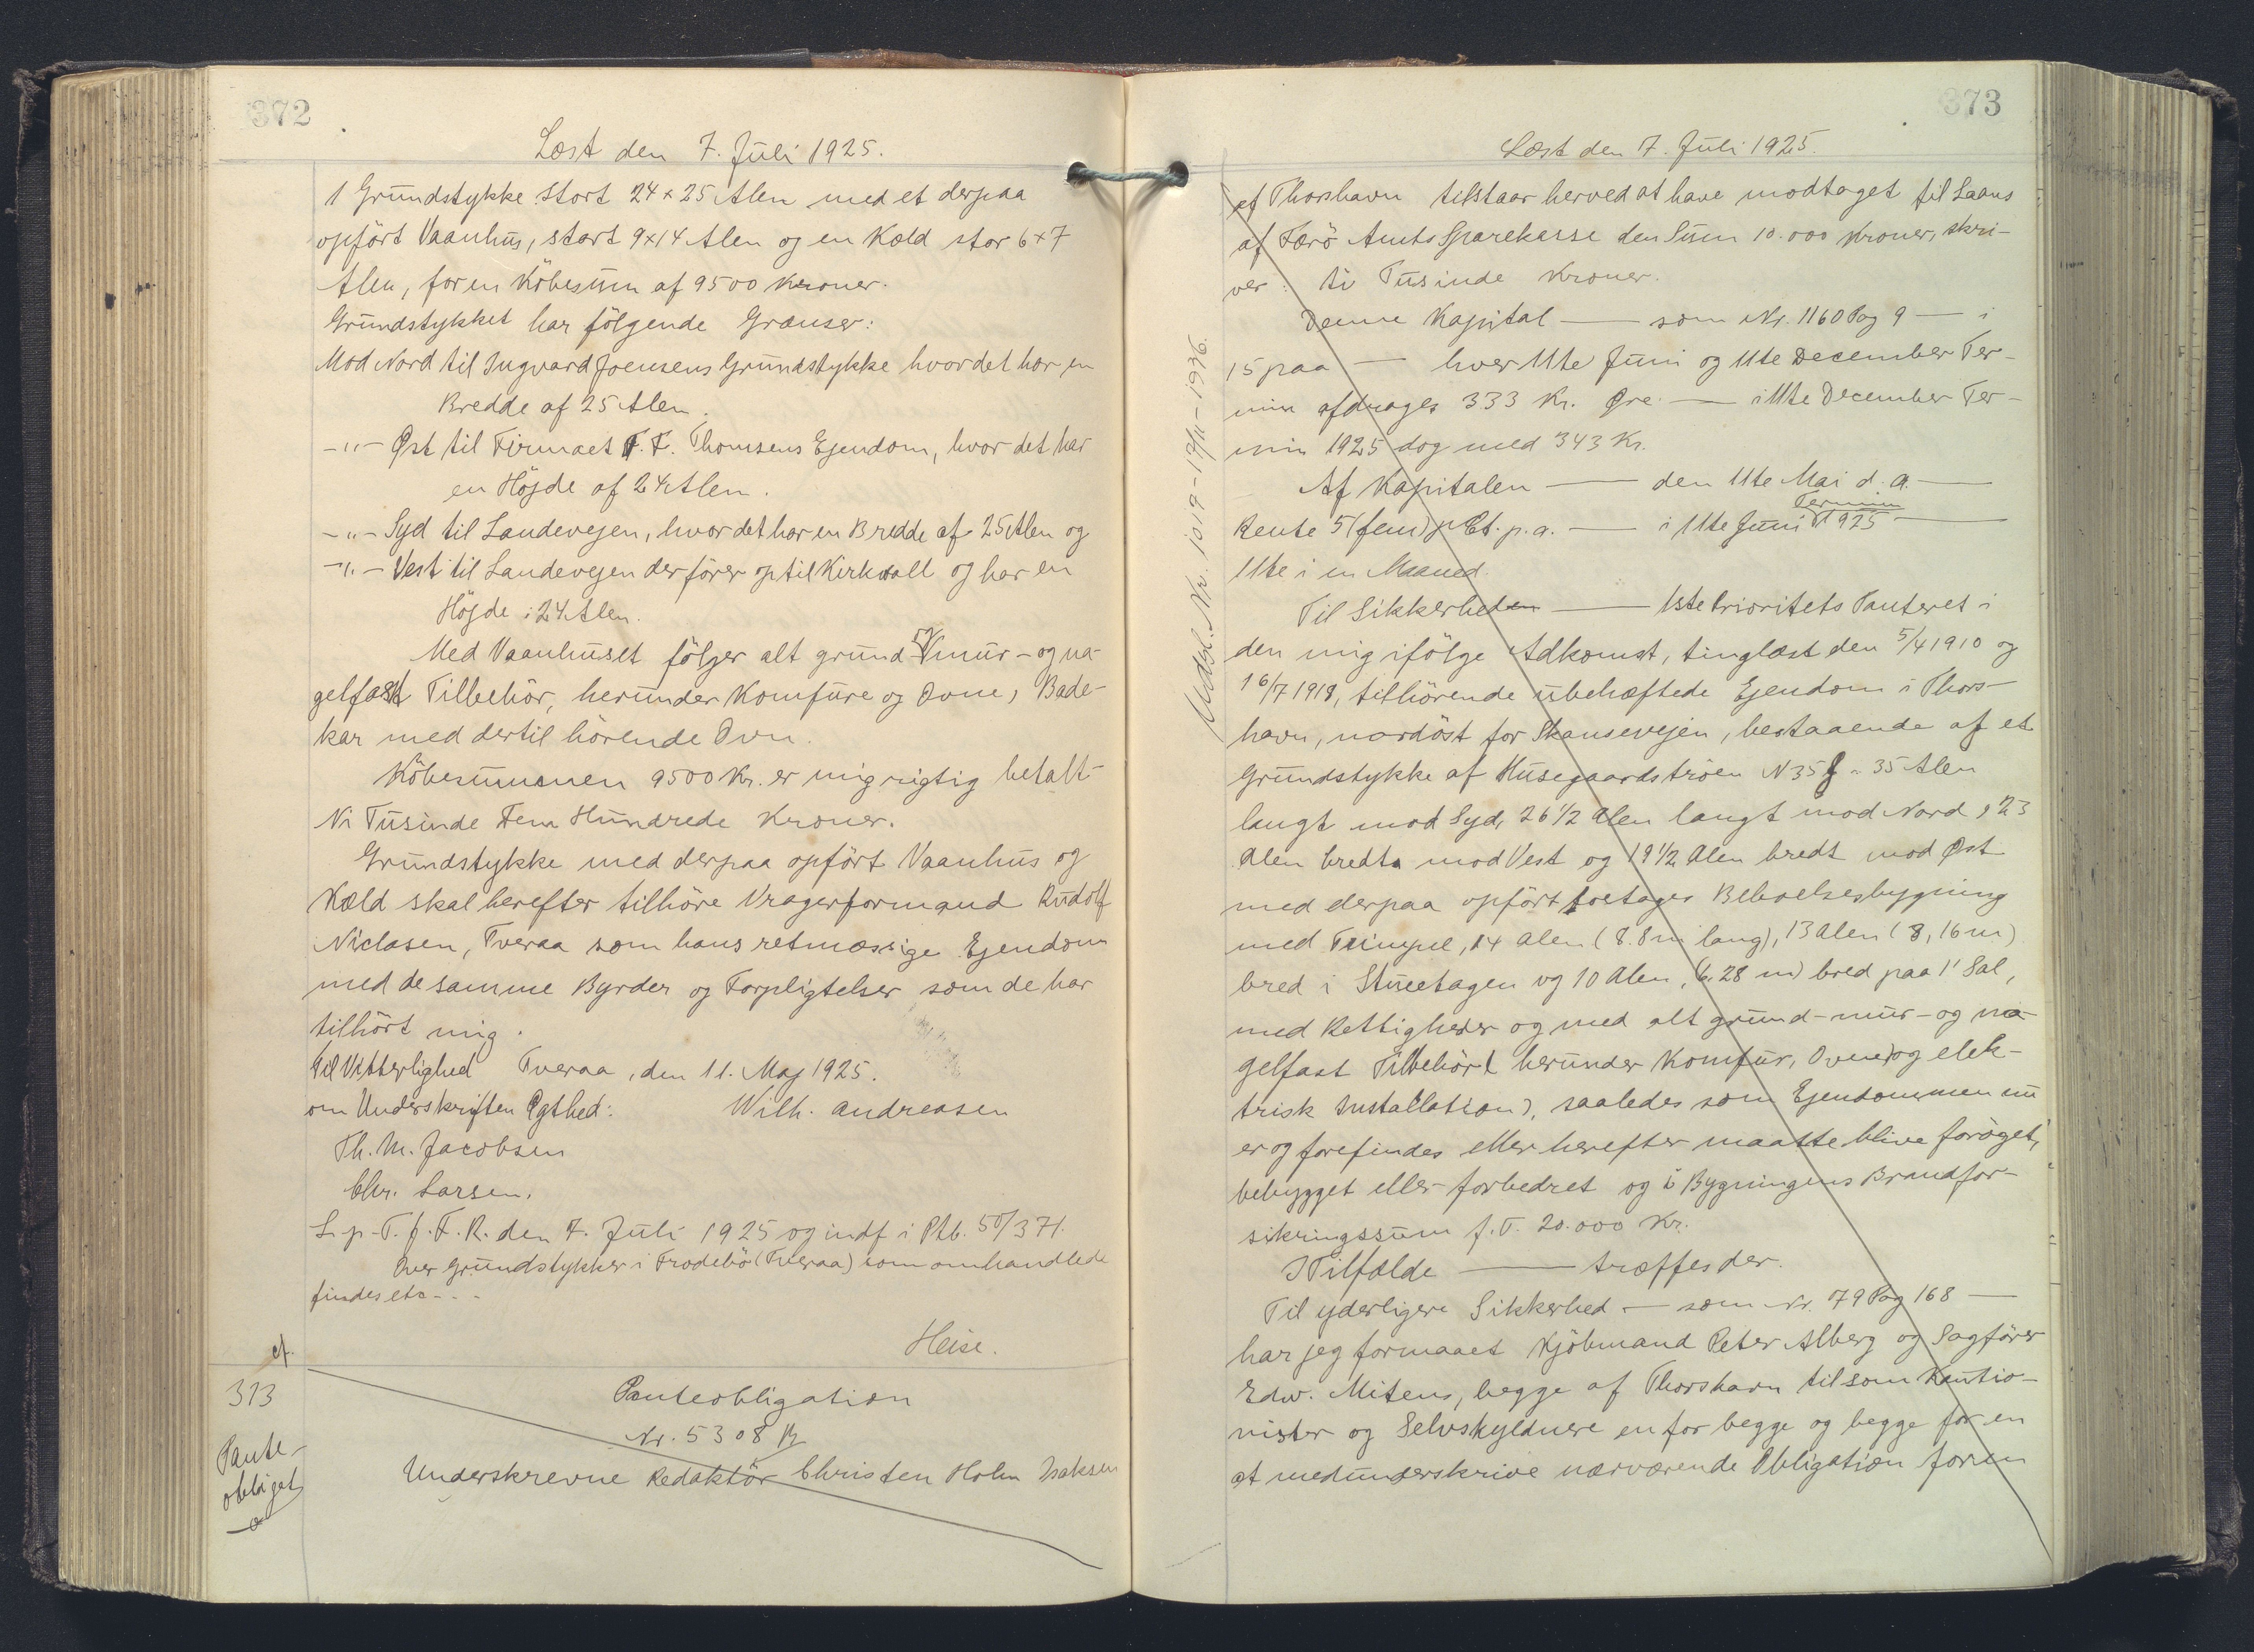 372
Læst den 7. Juli 1925.
1 Grundstykke stort 24 x 25 Alen med et derpaa
opført Vaanhus, stort 9x14 Alen og en Kæld stor 6x7
Alen, for en Köbesum af 9500 Kroner.
Grundstykket har fölgende Grænser:
Mod Nord til Ingvard Joensens Grundstykke hvor det har en
Bredde af 25 Alen.
-"- Øst til Firmaet T. F. Thomsens Ejendom, hvor det har
en Höjde af 24 Alen.
-"- Syd til Landevejen, hvor det har en Bredde af 25 Alen og
-"- Vest til Landevejen der förer op til Kirkvall og har en
Höjde i 24 Alen.
Med Vaanhuset fölger alt grund- og mur- og na-
gelfast Tilbehör, herunder Komfure og Ovne, Bade-
kar med dertil hörende Ovn.
Köbesummen 9500 Kr. er mig rigtig betalt-
Ni Tusinde Fem Hundrede Kroner.
Grundstykke med derpaa opfört Vaanhus og
Kæld skal herefter tilhöre Vragerformand Rudolf
Niclasen, Tveraa som hans retmæssige Ejendom
med de samme Byrder og Forpligtelser som de har
tilhört mig.
Til Vitterlighed Tveraa, den 11. Maj 1925.
om Underskriften Ægthed: Wilh. Andreasen
Th. M. Jacobsen
Chr. Larsen.
L. p. T. f. F. R. den 7. Juli 1925 og indf i Ptb. 50/371.
Over Grundstykker i Frodebö (Tveraa) som omhandlede
findes etc - - -
Heise.
cf.
313
Pante-
obligat
Panteobligation
Nr. 5308 B
Underskrevne Redaktör Christen Holm Isaksen
373
Læst den 7. Juli 1925.
af Thorshavn tilstaar herved at have modtaget til Laans
af Færö Amts Sparekasse den Sum 10.000 Kroner, skri-
ver: ti Tusinde Kroner.
Denne Kapital — som Nr. 1160 Pag 9 — i
15 paa — hver 11te Juni og 11te December Ter-
min afdrages 333 Kr. Øre. — i 11te December Ter-
min 1925 dog med 343 Kr.
Af Kapitalen — den 11te Mai d. a. —
Rente 5 (fem) p Ct. p. a. — i 11te Juni Termin 1925 —
11te i en Maaned.
Til Sikkerheden — 1ste Prioritets Panteret i
den mig ifölge Adkomst, tinglæst den 5/4 1910 og
16/7 1918, tilhörende ubehæftede Ejendom i Thors-
havn, nordöst for Skansevejen, bestaaende af et
Grundstykke af Husegaardströen N 35 - 35 Alen
langt mod Syd, 26 1/2 Alen langt mod Nord, 23
Alen bredt mod Vest og 19 1/2 Alen bredt mod Øst
med derpaa opfört toetages Beboelsesbygning
med Frimpel, 14 Alen (8.8 m lang), 13 Alen (8,16 m)
bred i Stueetagen og 10 Alen, (6,28 m) bred paa 1' Sal,
med Rettigheder og med alt grund- mur- og na-
gelfast Tilbehör (herunder Komfur, Ovne og elek-
trisk Installation), saaledes som Ejendommen nu
er og forefindes eller herefter maatte blive foröget,
bebygget eller forbedret og i Bygningens Brandfor-
sikringssum f. T. 20.000 Kr.
I Tilfælde — træffes der.
Til yderligere Sikkerhed — som Nr. 79 Pag 168 —
har jeg formaaet Kjöbmand Peter Alberg og Sagförer
Edw. Mitens, begge af Thorshavn til som Kautio-
nister og Selvskyldnere en for begge og begge for en
at medunderskrive nærværende Obligation for en
Udsl. Nr. 1019 - 17/11 - 1936.